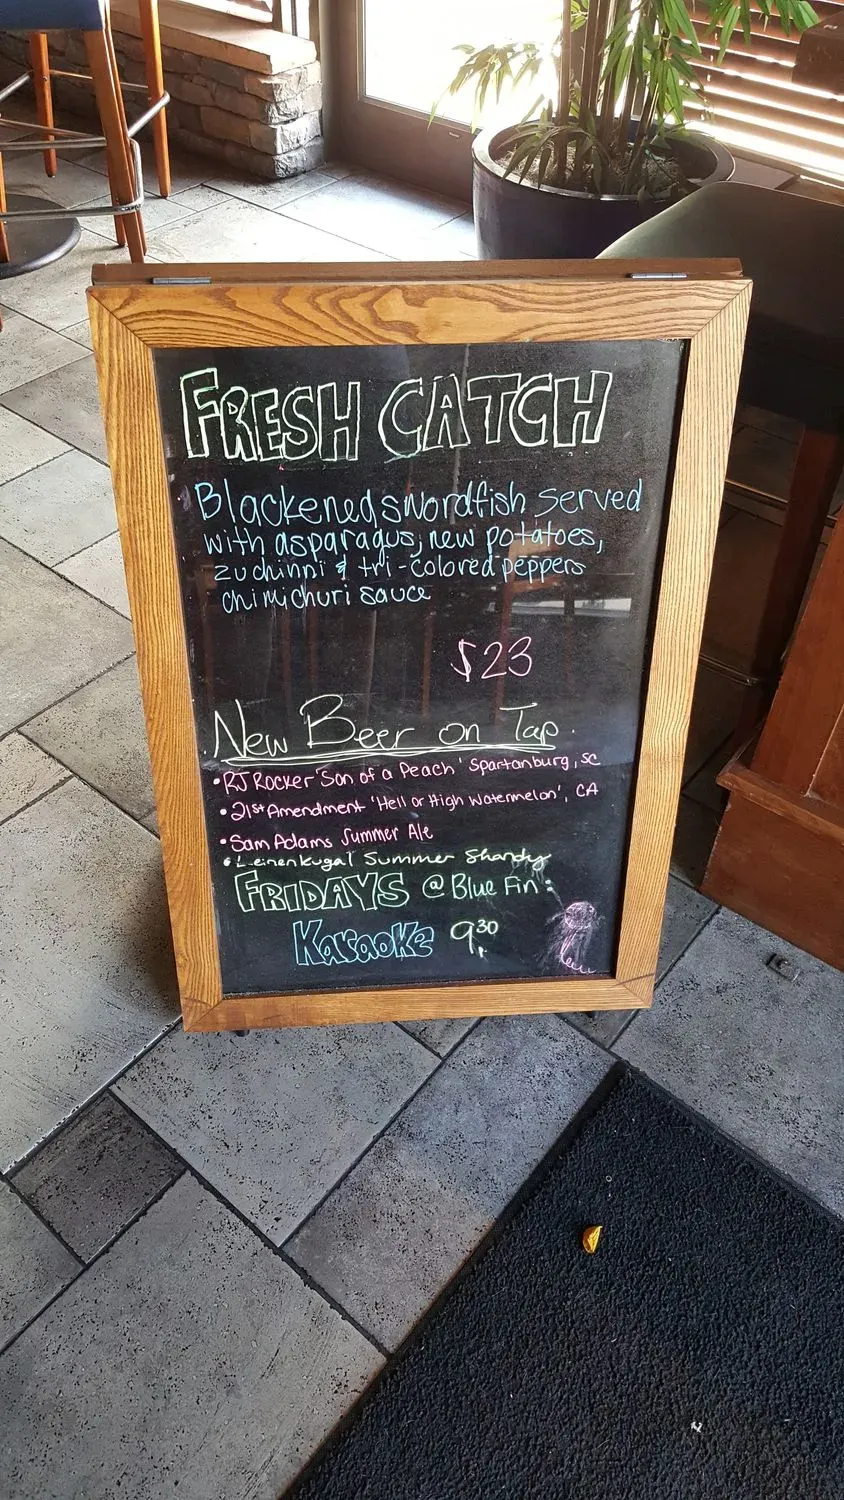 FRESH CATCH
Blackened swordfish served
with asparagus, new potatoes,
zuchinni & tri-colored peppers
chimichuri sauce
$23
New Beer on Tap
• RJ Rocker 'Son of a Peach' Spartanburg, SC
• 21st Amendment 'Hell or High Watermelon', CA
• Sam Adams Summer Ale
• Leinenkugal Summer Shandy
FRIDAYS @ Blue Fin:
Karaoke 9:30